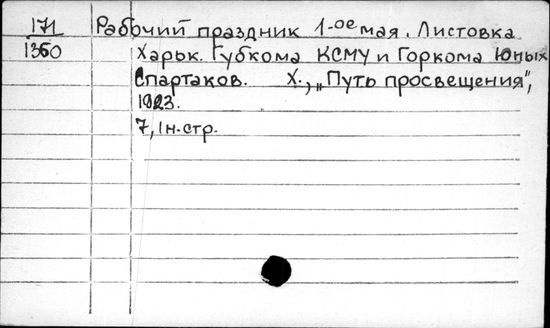 171 Рабочий праздник 1-ое мая. Листовка
1350 Харьк. Губкома КСМУ и Горкома Юных
Спартаков. Х., „Путь просвещения",
1923.
7, 1н.стр.